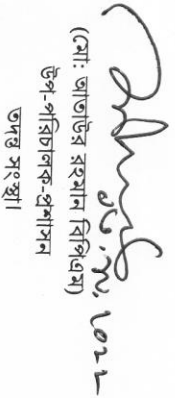 (মো: আতাউর রহমান বিপিএম)
উপ-পরিচালক-প্রশাসন
তদন্ত সংস্থা।